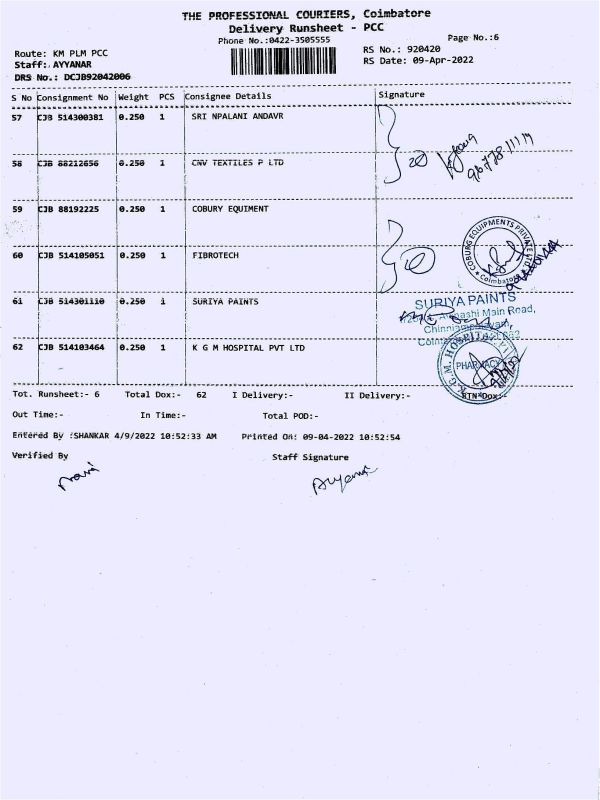 THE PROFESSIONAL COURIERS, Coimbatore
Delivery Runsheet - PCC
Phone No.:0422-3505555
Page No.:6
Route: KM PLM PCC
RS No.: 920420
Staff: AYYANAR
RS Date: 09-Apr-2022
DRS No.: DCJB92042006
S No Consignment No Weight PCS Consignee Details Signature
57 CJB 514300381 0.250 1 SRI NPALANI ANDAVR
58 CJB 88212656 0.250 1 CNV TEXTILES P LTD
20
59 CJB 88192225 0.250 1 COBURY EQUIMENT
COBURG EQUIPMENTS PRIVATE LTD
Coimbatore
60 CJB 514105051 0.250 1 FIBROTECH
61 CJB 514301110 0.250 1 SURIYA PAINTS
SURIYA PAINTS
Avinashi Main Road,
Chinniampalayam,
62 CJB 514103464 0.250 1 K G M HOSPITAL PVT LTD
K.G.M. HOSPITAL
PHARMACY
Tot. Runsheet:- 6 Total Dox:- 62 I Delivery:- II Delivery:- RTN Dox:-
Out Time:- In Time:- Total POD:-
Entered By :SHANKAR 4/9/2022 10:52:33 AM Printed On: 09-04-2022 10:52:54
Verified By Staff Signature